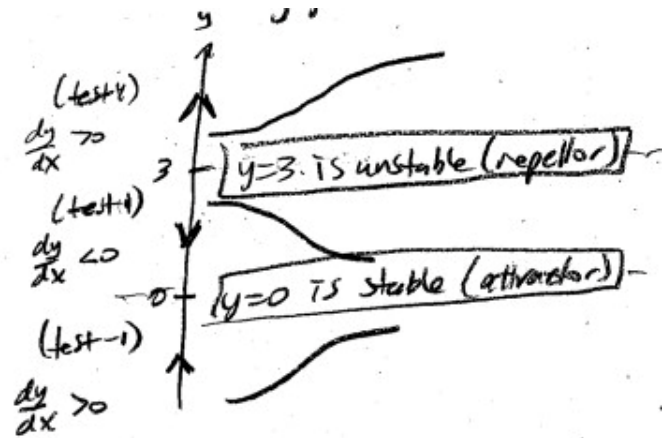 y
(test 4)
dy/dx > 0
3
y=3. is unstable (repellor)
(test 1)
dy/dx < 0
0
y=0 is stable (attractor)
(test -1)
dy/dx > 0